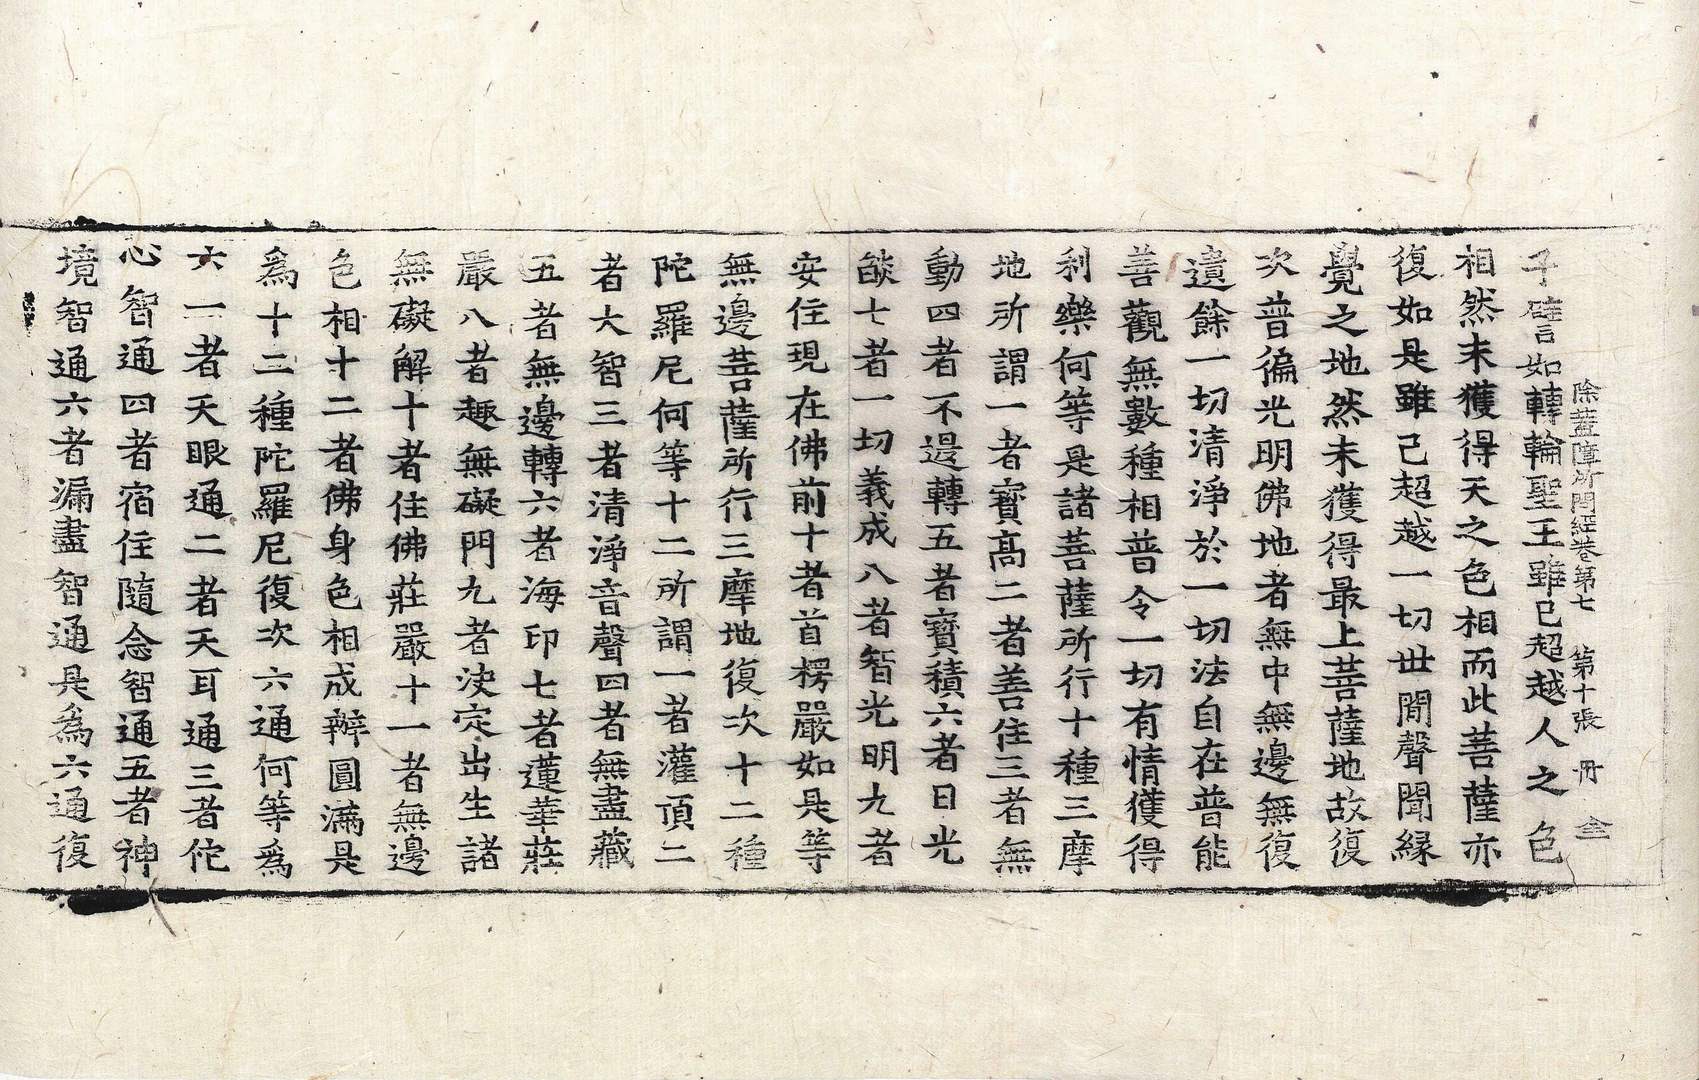 除蓋障所問經卷第七　第十張　冊
子譬如轉輪聖王雖已超越人之色
相然未獲得天之色相而此菩薩亦
復如是雖已超越一切世間聲聞緣
覺之地然未獲得最上菩薩地故復
次普徧光明佛地者無中無邊無復
遺餘一切清淨於一切法自在普能
善觀無數種相普令一切有情獲得
利樂何等是諸菩薩所行十種三摩
地所謂一者寶高二者善住三者無
動四者不退轉五者寶積六者日光
燄七者一切義成八者智光明九者
安住現在佛前十者首楞嚴如是等
無邊菩薩所行三摩地復次十二種
陀羅尼何等十二所謂一者灌頂二
者大智三者清淨音聲四者無盡藏
五者無邊轉六者海印七者蓮華莊
嚴八者趣無礙門九者決定出生諸
無礙解十者住佛莊嚴十一者無邊
色相十二者佛身色相成辦圓滿是
為十二種陀羅尼復次六通何等為
六一者天眼通二者天耳通三者佗
心智通四者宿住隨念智通五者神
境智通六者漏盡智通是為六通復